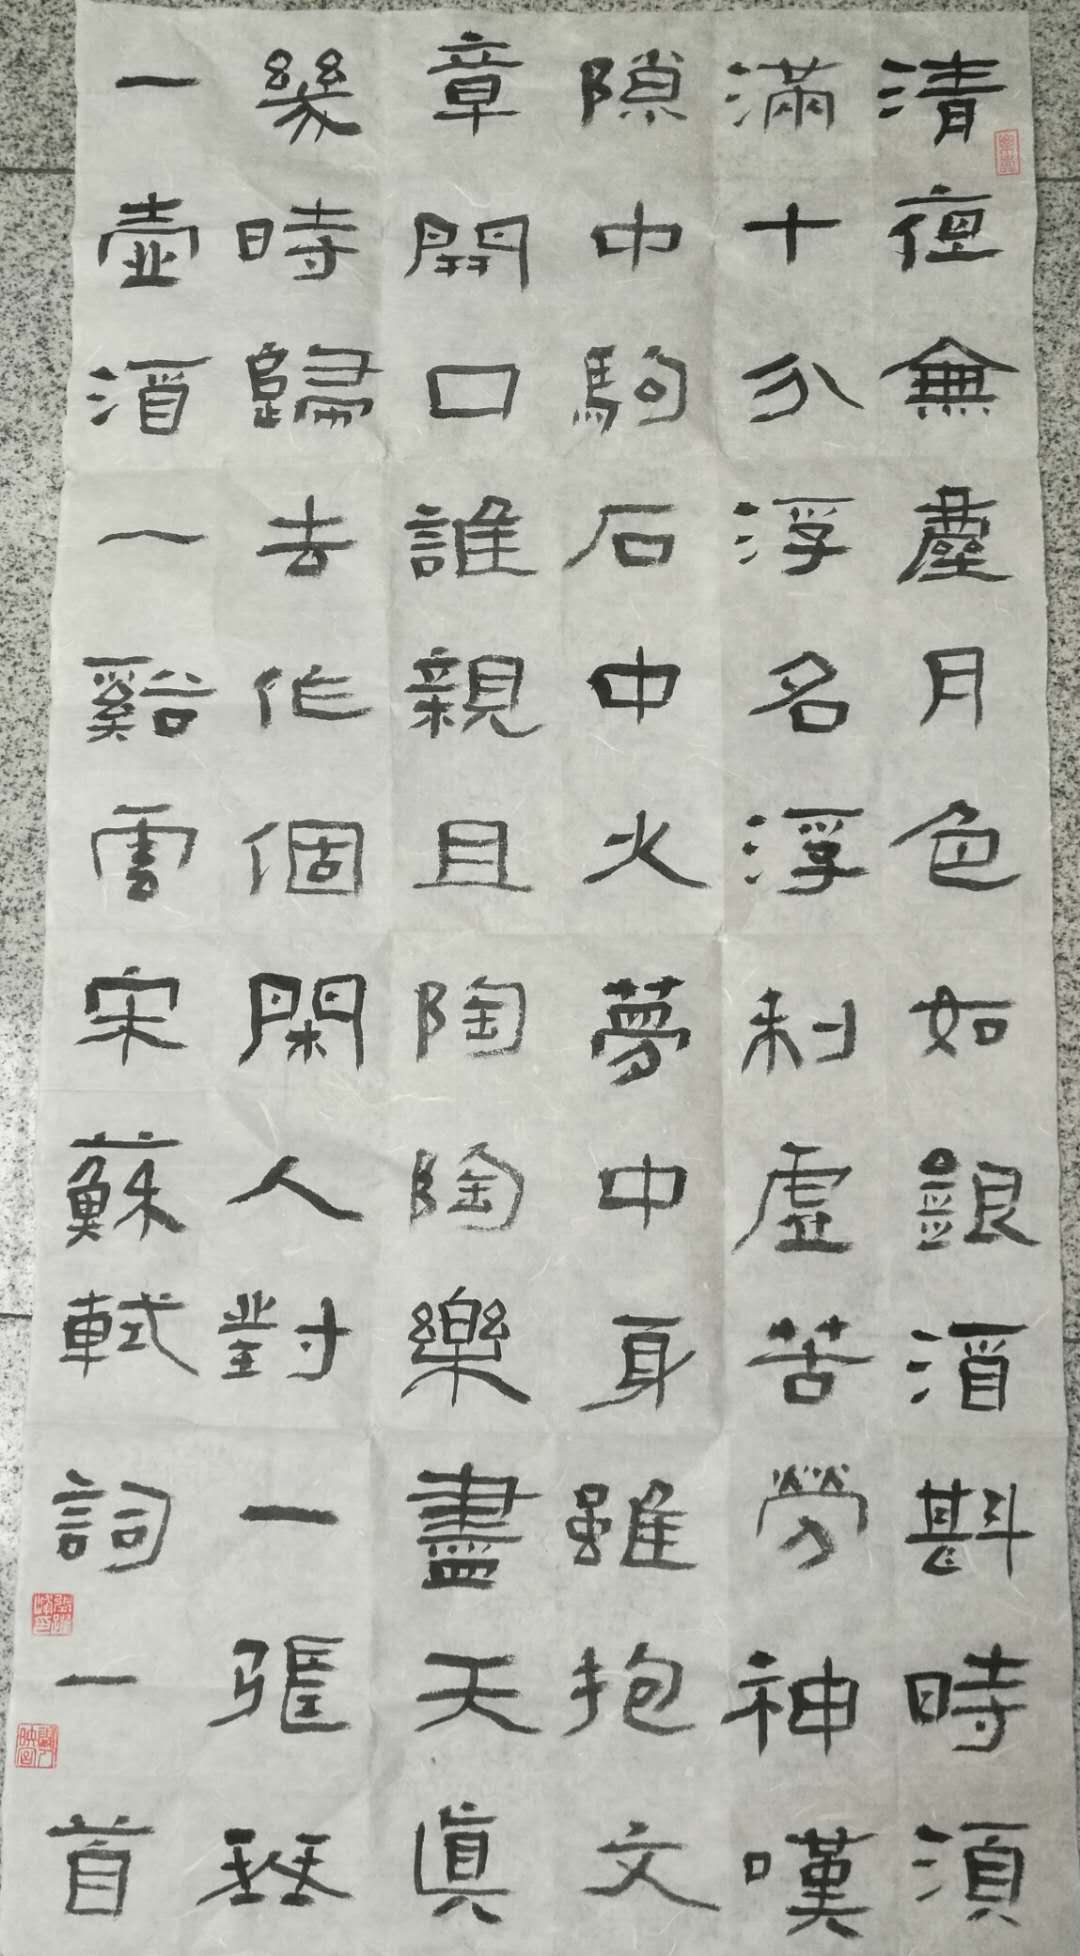 清夜無塵月色如銀酒斟時須
滿十分浮名浮利虛苦勞神嘆
隙中駒石中火夢中身雖抱文
章開口誰親且陶陶樂盡天真
幾時歸去作個閑人對一張琴
一壺酒一谿雲宋蘇軾詞一首